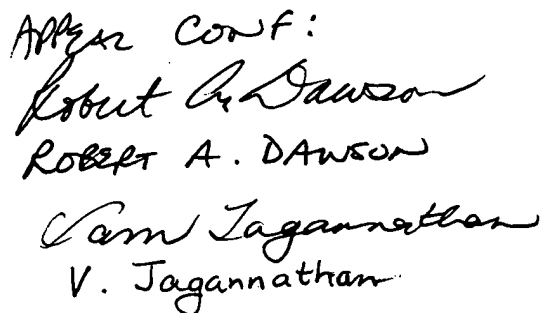 APPEAL CONF:
Robert A. Dawson
ROBERT A. DAWSON
Jagannathan
V. Jagannathan